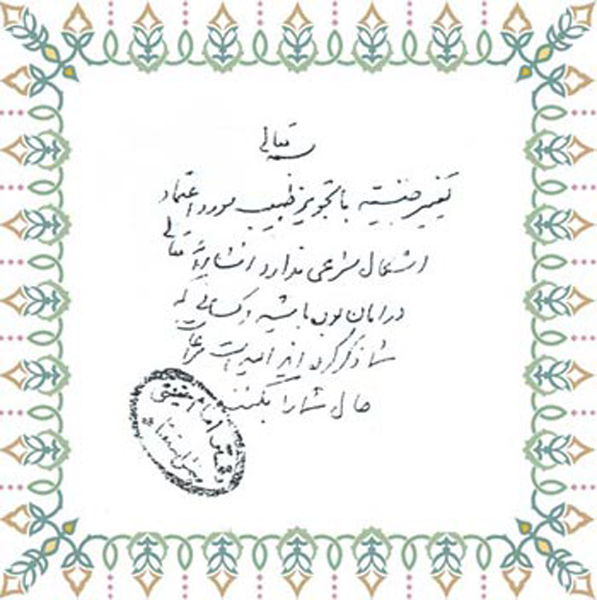 بسمه تعالی
تغییر جنسیت با تجویز طبیب مورد اعتماد
اشکال شرعی ندارد انشاءالله تعالی
در امان بوده باشید و کسانی که
شما ذکر کرده اید امید است مراعات
حال شما را بکنند
دفتر امام خمینی